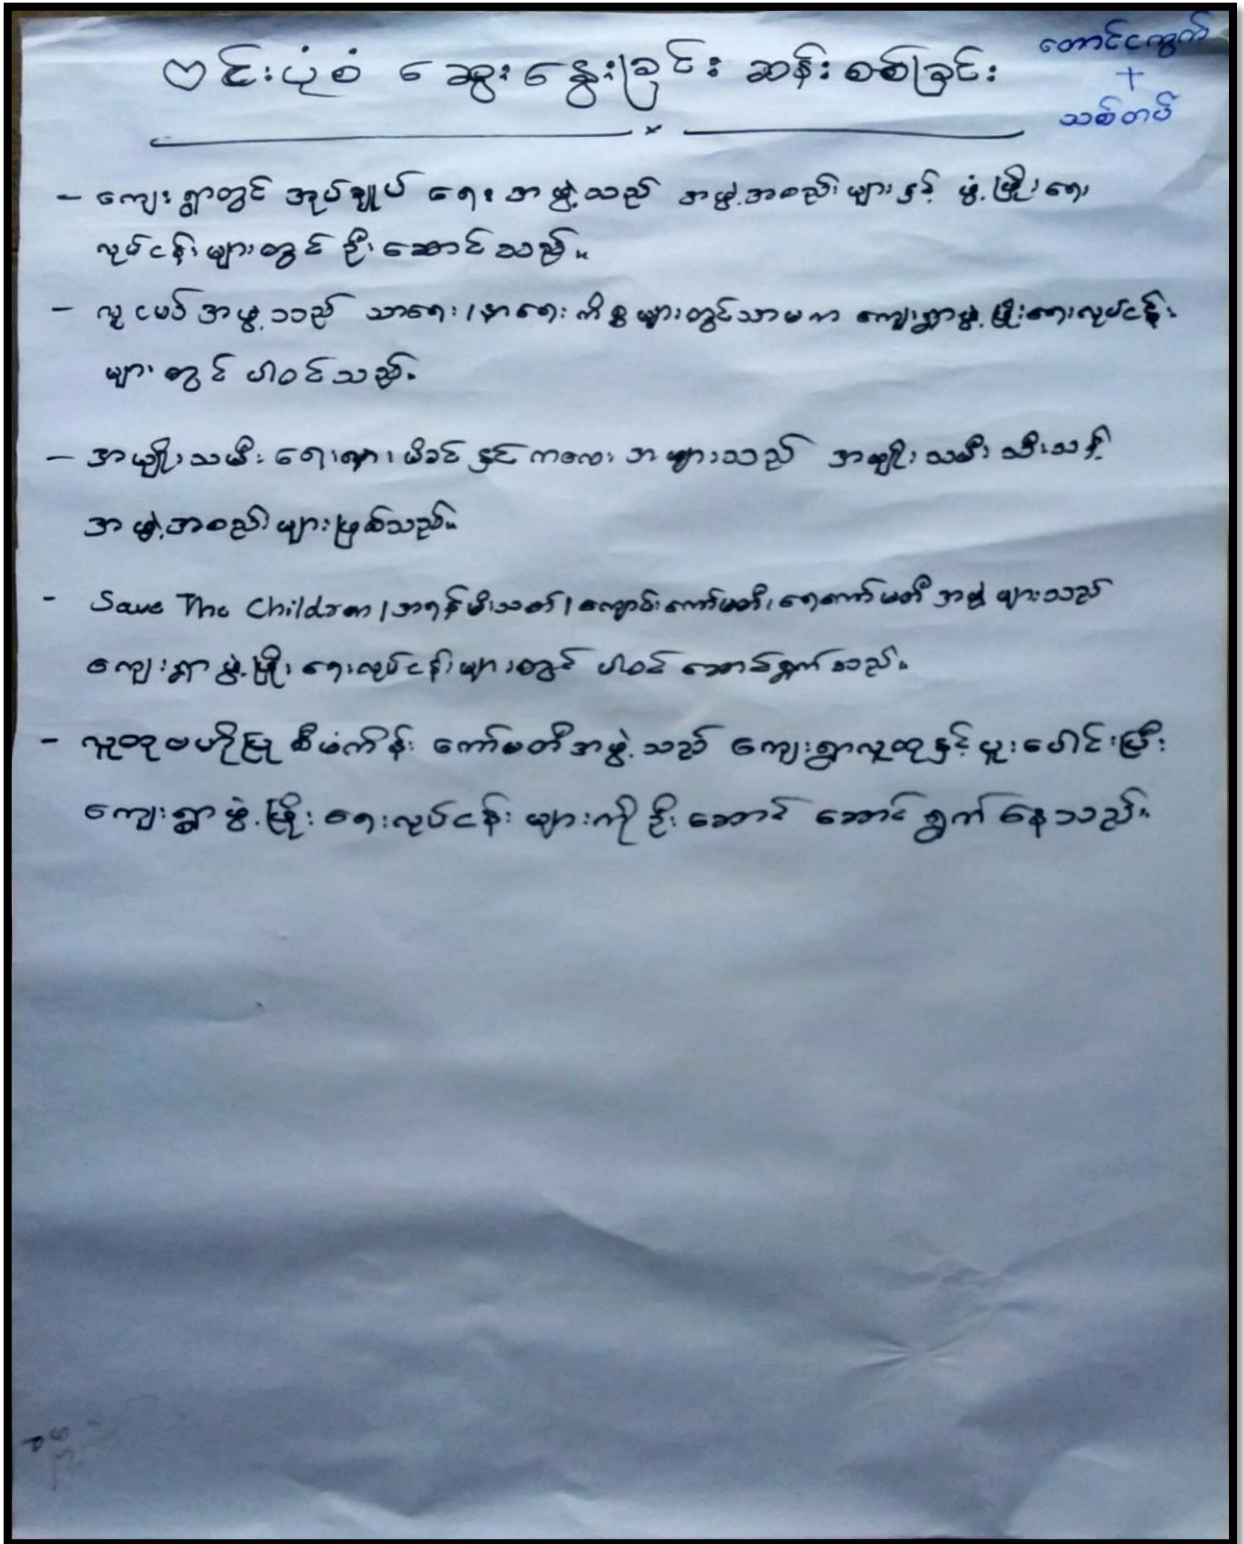 ဗင်းပုံစံ ဆွေးနွေးခြင်း ဆန်းစစ်ခြင်း
တောင်ငကွက်
+
သစ်တပ်
- ကျေးရွာတွင် အုပ်ချုပ်ရေးအဖွဲ့သည် အဖွဲ့အစည်းများနှင့် ဖွံ့ဖြိုးရေး
လုပ်ငန်းများတွင် ဦးဆောင်သည်။
- လူငယ်အဖွဲ့သည် သာရေး/နာရေးကိစ္စများတွင်သာမက ကျေးရွာဖွံ့ဖြိုးရေးလုပ်ငန်း
များတွင် ပါဝင်သည်။
- အမျိုးသမီးရေးရာ၊ မိခင်နှင့်ကလေး အများသည် အမျိုးသမီး သီးသန့်
အဖွဲ့အစည်းများဖြစ်သည်။
- Save The Children/အရန်မီးသတ်/ကျောင်းကော်မတီ၊ ရေကော်မတီ အဖွဲ့များသည်
ကျေးရွာဖွံ့ဖြိုးရေးလုပ်ငန်းများတွင် ပါဝင်ဆောင်ရွက်သည်။
- လူထုဗဟိုပြုစီမံကိန်း ကော်မတီအဖွဲ့သည် ကျေးရွာလူထုနှင့်ပူးပေါင်းပြီး
ကျေးရွာဖွံ့ဖြိုးရေးလုပ်ငန်းများကိုဦးဆောင် ဆောင်ရွက်နေသည်။